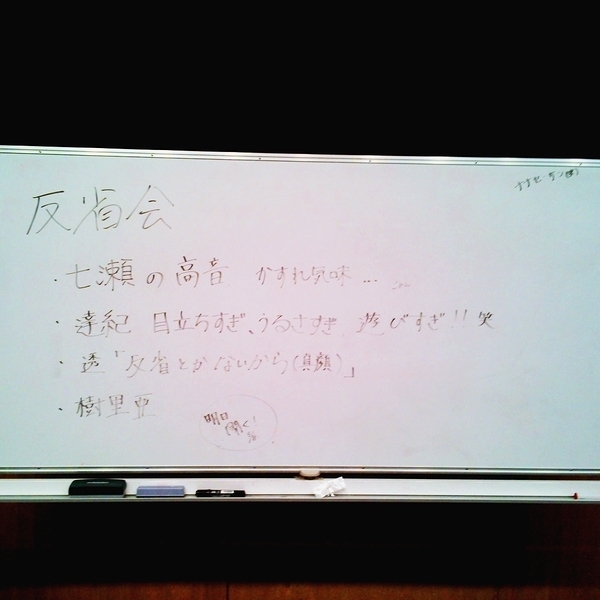 反省会
・七瀬の高音 かすれ気味…
・達紀 目立ちすぎ、うるさすぎ 遊びすぎ!! 笑
・透「反省とかないから(真顔)」
・樹里亜
明日
聞く!